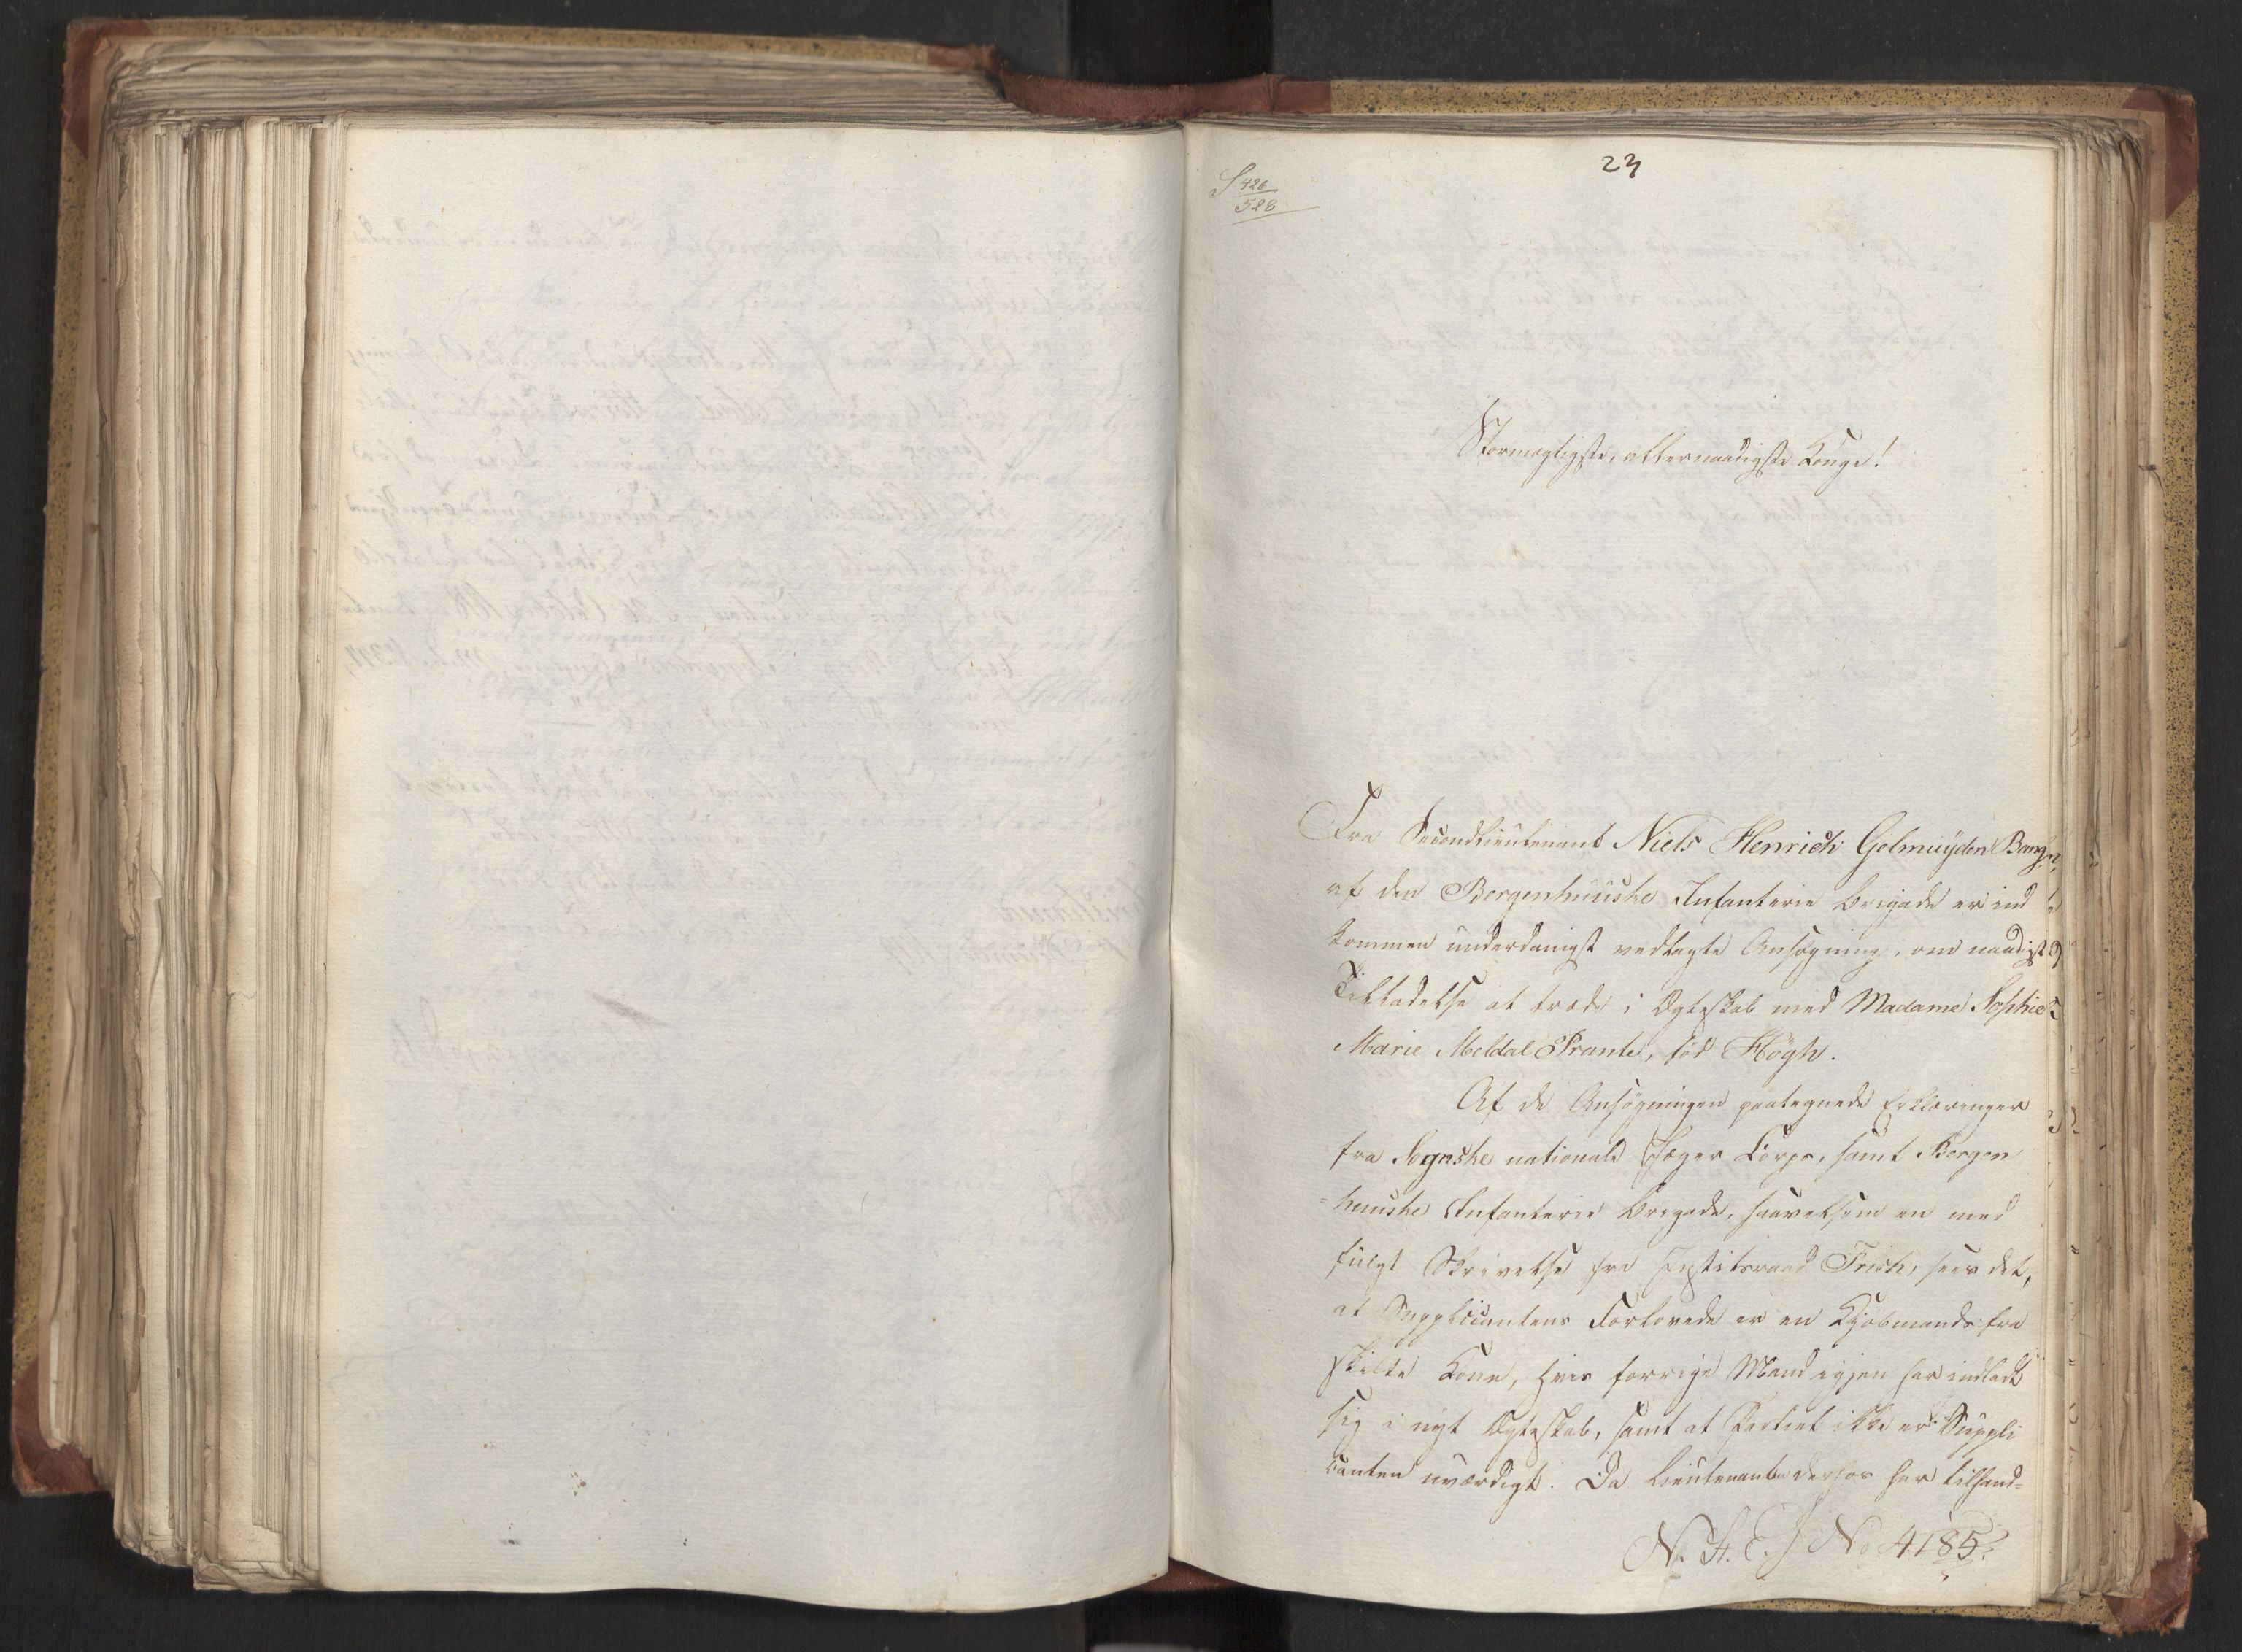 23
S 426
528
Stormægtigste, allernaadigste Konge!
Fra Secondlieutenant Niels Henrich Gelmuyden Bang
af den Bergenhuuske Infanterie Brigade er ind
kommen underdanigst vedlagte Ansøgning, om naadigst
Tilladelse at træde i Ægteskab med Madame Sophie
Marie Meldal Prante, fød Högh.
Af de Ansøgningen paategnede Erklæringer
fra Sognske nationale Jæger Corps, samt Bergen
=huuske Infanterie Brigade, saavelsom en med
fulgt Skrivelse fra Justitsraad Frich, sees det,
at Supplicantens Forlovede er en Kjøbmands fra
skilte Kone, hvis forrige Mand igjen har indladt
sig i nyt Ægteskab, samt at Partiet ikke er Suppli
canten uværdigt. Da Lieutenanten derhos har tilhand-
N. A. E. J No 4185.